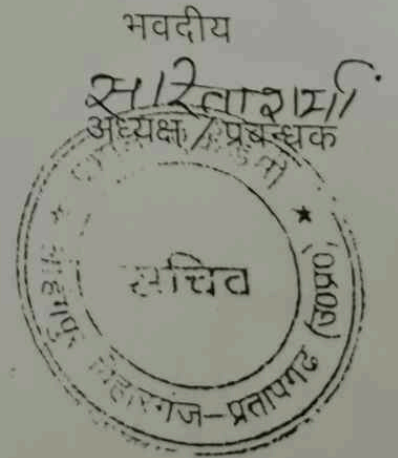 भवदीय
सरिता शर्मा
अध्यक्ष / प्रबन्धक
सचिव
बिहारगंज-प्रतापगढ़ (उ0प्र0)